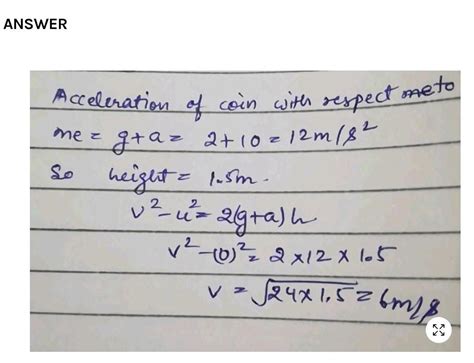 ANSWER
Acceleration of coin with respect to
me = g+a = 2+10 = 12m/s²
So height = 1.5m.
v²-u² = 2(g+a)h
v²-(0)² = 2×12×1.5
v = √24×1.5 = 6m/s